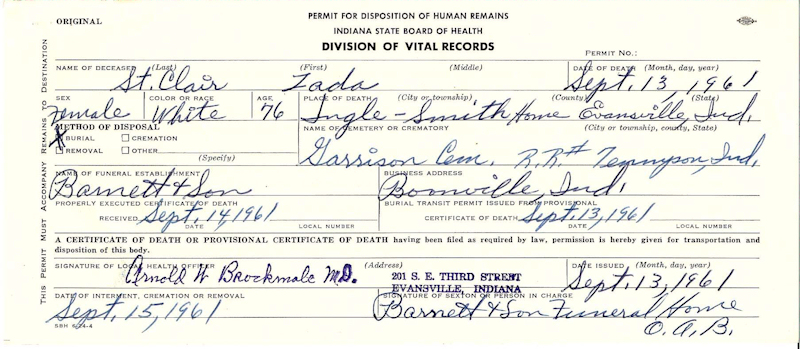 ORIGINAL
PERMIT FOR DISPOSITION OF HUMAN REMAINS
INDIANA STATE BOARD OF HEALTH
DIVISION OF VITAL RECORDS
PERMIT NO.:
NAME OF DECEASED (Last) (First) (Middle) DATE OF DEATH (Month, day, year)
St. Clair Zada Sept. 13, 1961
SEX COLOR OR RACE AGE PLACE OF DEATH (City or township) (County) (State)
Female White 76 Ingle - Smith Home Evansville, Ind.
METHOD OF DISPOSAL NAME OF CEMETERY OR CREMATORY (City or township, county, State)
X BURIAL CREMATION
REMOVAL OTHER
(Specify)
Garrison Cem. R.R.# Tennyson, Ind.
NAME OF FUNERAL ESTABLISHMENT BUSINESS ADDRESS
Barnett & Son Boonville, Ind.
PROPERLY EXECUTED CERTIFICATE OF DEATH BURIAL TRANSIT PERMIT ISSUED FROM PROVISIONAL
RECEIVED Sept. 14, 1961 CERTIFICATE OF DEATH Sept. 13, 1961
DATE LOCAL NUMBER DATE LOCAL NUMBER
A CERTIFICATE OF DEATH OR PROVISIONAL CERTIFICATE OF DEATH having been filed as required by law, permission is hereby given for transportation and
disposition of this body.
SIGNATURE OF LOCAL HEALTH OFFICER (Address) DATE ISSUED (Month, day, year)
Arnold W Brockmole M.D. 201 S. E. THIRD STREET Sept. 13, 1961
EVANSVILLE, INDIANA
DATE OF INTERMENT, CREMATION OR REMOVAL SIGNATURE OF SEXTON OR PERSON IN CHARGE
Sept. 15, 1961 Barnett & Son Funeral Home
O.A.B.
SBH 6-24-4
THIS PERMIT MUST ACCOMPANY REMAINS TO DESTINATION